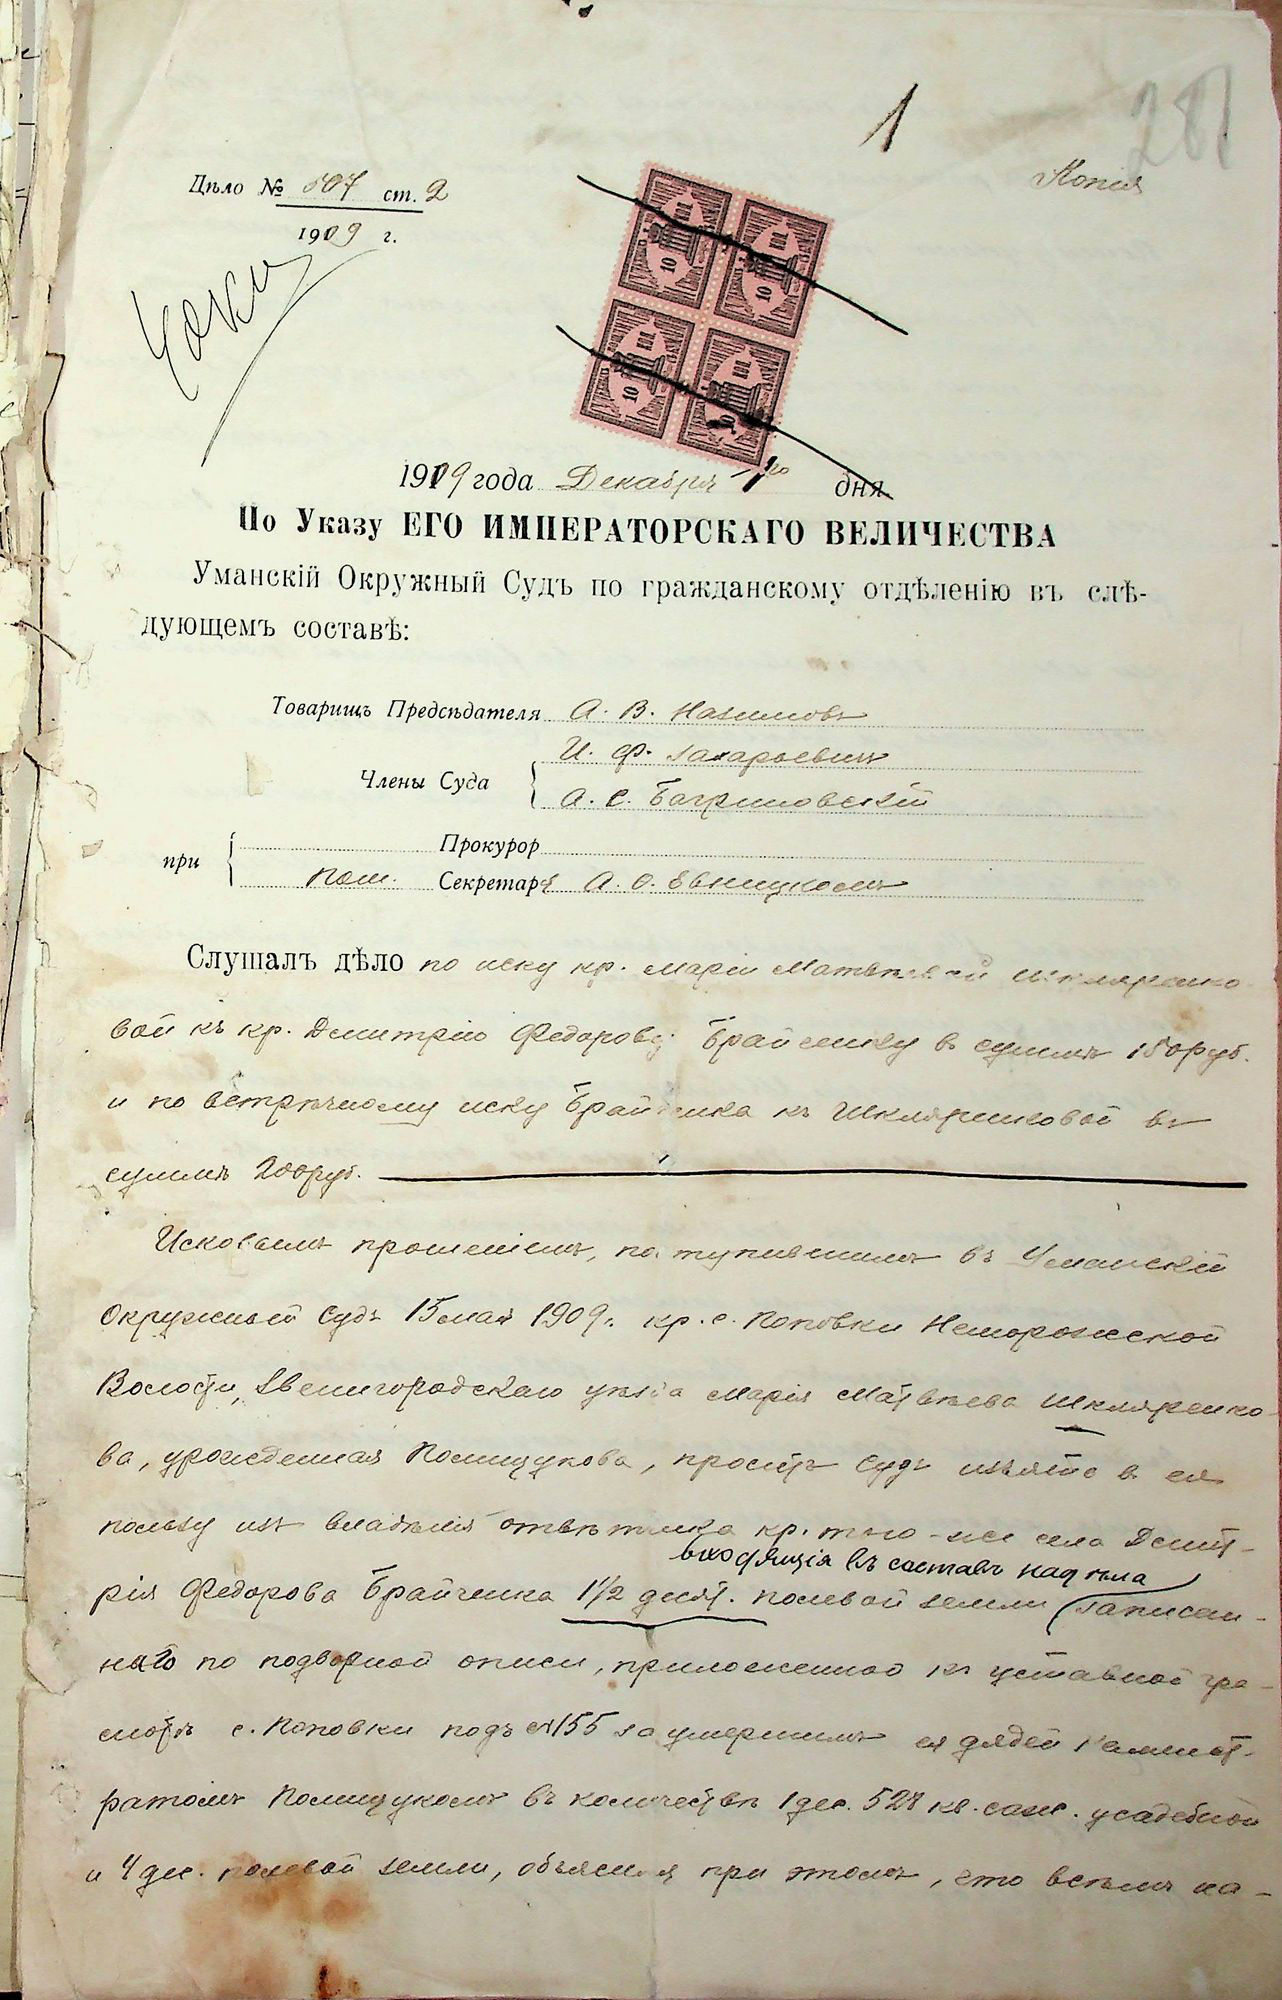 1
281
Копія
Дѣло № 507 ст. 2
1909 г.
1909 года Декабря 1го дня
По Указу ЕГО ИМПЕРАТОРСКАГО ВЕЛИЧЕСТВА
Уманскій Окружный Судъ по гражданскому отдѣленію въ слѣ-
дующемъ составѣ:
Товарищъ Предсѣдателя А. В. Назимовъ
И. Ф. Захарьевичъ
Члены Суда
А. С. Багриновскій
Прокурор
при
Пом. Секретаря А. О. Евницкомъ
Слушалъ дѣло по иску кр. Маріи Матвѣевой Шкляренко-
вой къ кр. Дмитрію Федорову Брайченку въ суммѣ 150 руб.
и по встрѣчному иску Брайченка къ Шкляренковой въ
суммѣ 200 руб.
Исковымъ прошеніемъ, поступившимъ въ Уманскій
Окружный Судъ 15 мая 1909 г. кр. с. Поповки Неморожской
Волости, Звенигородскаго уѣзда Марія Матвѣева Шкляренко-
ва, урожденная Полищукова, проситъ Судъ изъять въ ея
пользу изъ владѣнія отвѣтчика кр. того-же села Дмит-
входящія въ составъ надѣла
рія Федорова Брайченка 1 1/2 десят. полевой земли записан-
наго по подворной описи, приложенной къ уставной гра-
мотѣ с. Поповки подъ №155 за умершимъ ея дядей Калист-
ратомъ Полищукомъ въ количествѣ 1 дес. 528 кв. саж. усадебной
и 4 дес. полевой земли, объясняя при этомъ, что всѣмъ на-